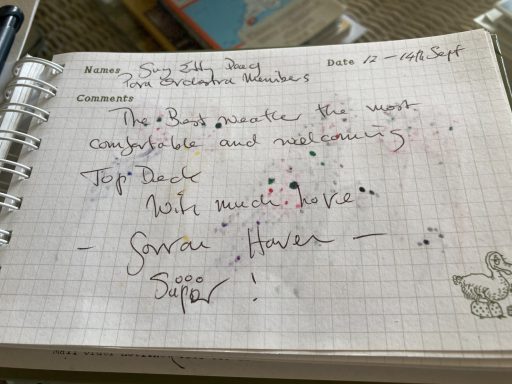 Names
Para Orchestra Members
Date 12 - 14th Sept
Comments
The Best weather the most
comfortable and welcoming
Top Deck
With much love
- Haven -
Süpör !